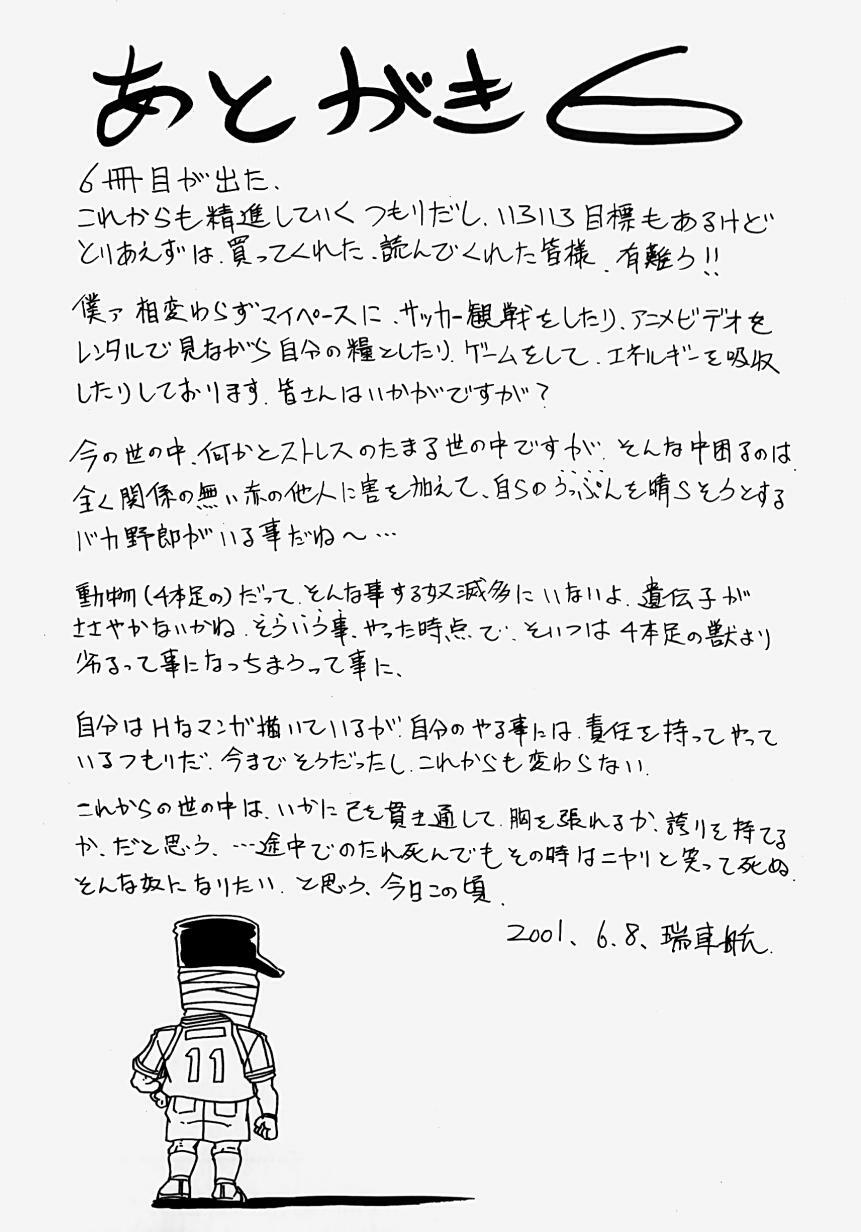 あとがき6
6冊目が出た、
これからも精進していくつもりだし、いろいろ目標もあるけど
とりあえずは、買ってくれた、読んでくれた皆様、有難う!!
僕ァ相変わらずマイペースに、サッカー観戦をしたり、アニメビデオを
レンタルで見ながら自分の糧としたり、ゲームをして、エネルギーを吸収
したりしております。皆さんはいかがですが?
今の世の中、何かとストレスのたまる世の中ですが、そんな中困るのは、
全く関係の無い赤の他人に害を加えて、自らのうっぷんを晴らそうとする
バカ野郎がいる事だね〜…
動物(4本足の)だって、そんな事する奴滅多にいないよ。遺伝子が
ささやかないかね。そういう事、やった時点で、そいつは4本足の獣より
劣るって事になっちまうって事に、
自分はHなマンガ描いているが、自分のやる事には、責任を持ってやって
いるつもりだ。今までそうだったし、これからも変わらない。
これからの世の中は、いかに己を貫き通して、胸を張れるか、誇りを持てる
か、だと思う、…途中でのたれ死んでもその時はニヤリと笑って死ぬ、
そんな奴になりたい。と思う、今日この頃。
2001、6.8、瑞車航.
11